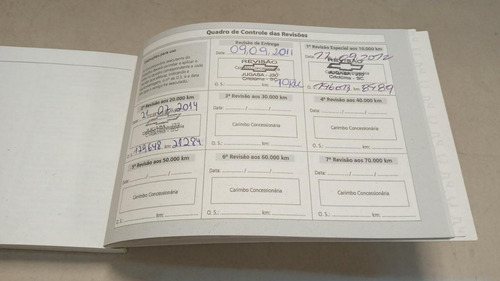 Quadro de Controle das Revisões
Revisão de Entrega
Data: 09.09.2011
REVISÃO
JUGASA - 250
Criciúma - SC
O. S.: km: 10km
1ª Revisão Especial aos 10.000 km
Data: 17.09.2012
REVISÃO
JUGASA - 250
Criciúma - SC
O. S.: km: 8989
2ª Revisão aos 20.000 km
Data: 21.02.2014
O. S.: 129648 km: 21284
3ª Revisão aos 30.000 km
Data: / /
Carimbo Concessionária
O. S.: km:
4ª Revisão aos 40.000 km
Data: / /
Carimbo Concessionária
O. S.: km:
5ª Revisão aos 50.000 km
Data: / /
Carimbo Concessionária
O. S.: km:
6ª Revisão aos 60.000 km
Data: / /
Carimbo Concessionária
O. S.: km:
7ª Revisão aos 70.000 km
Data: / /
Carimbo Concessionária
O. S.: km: